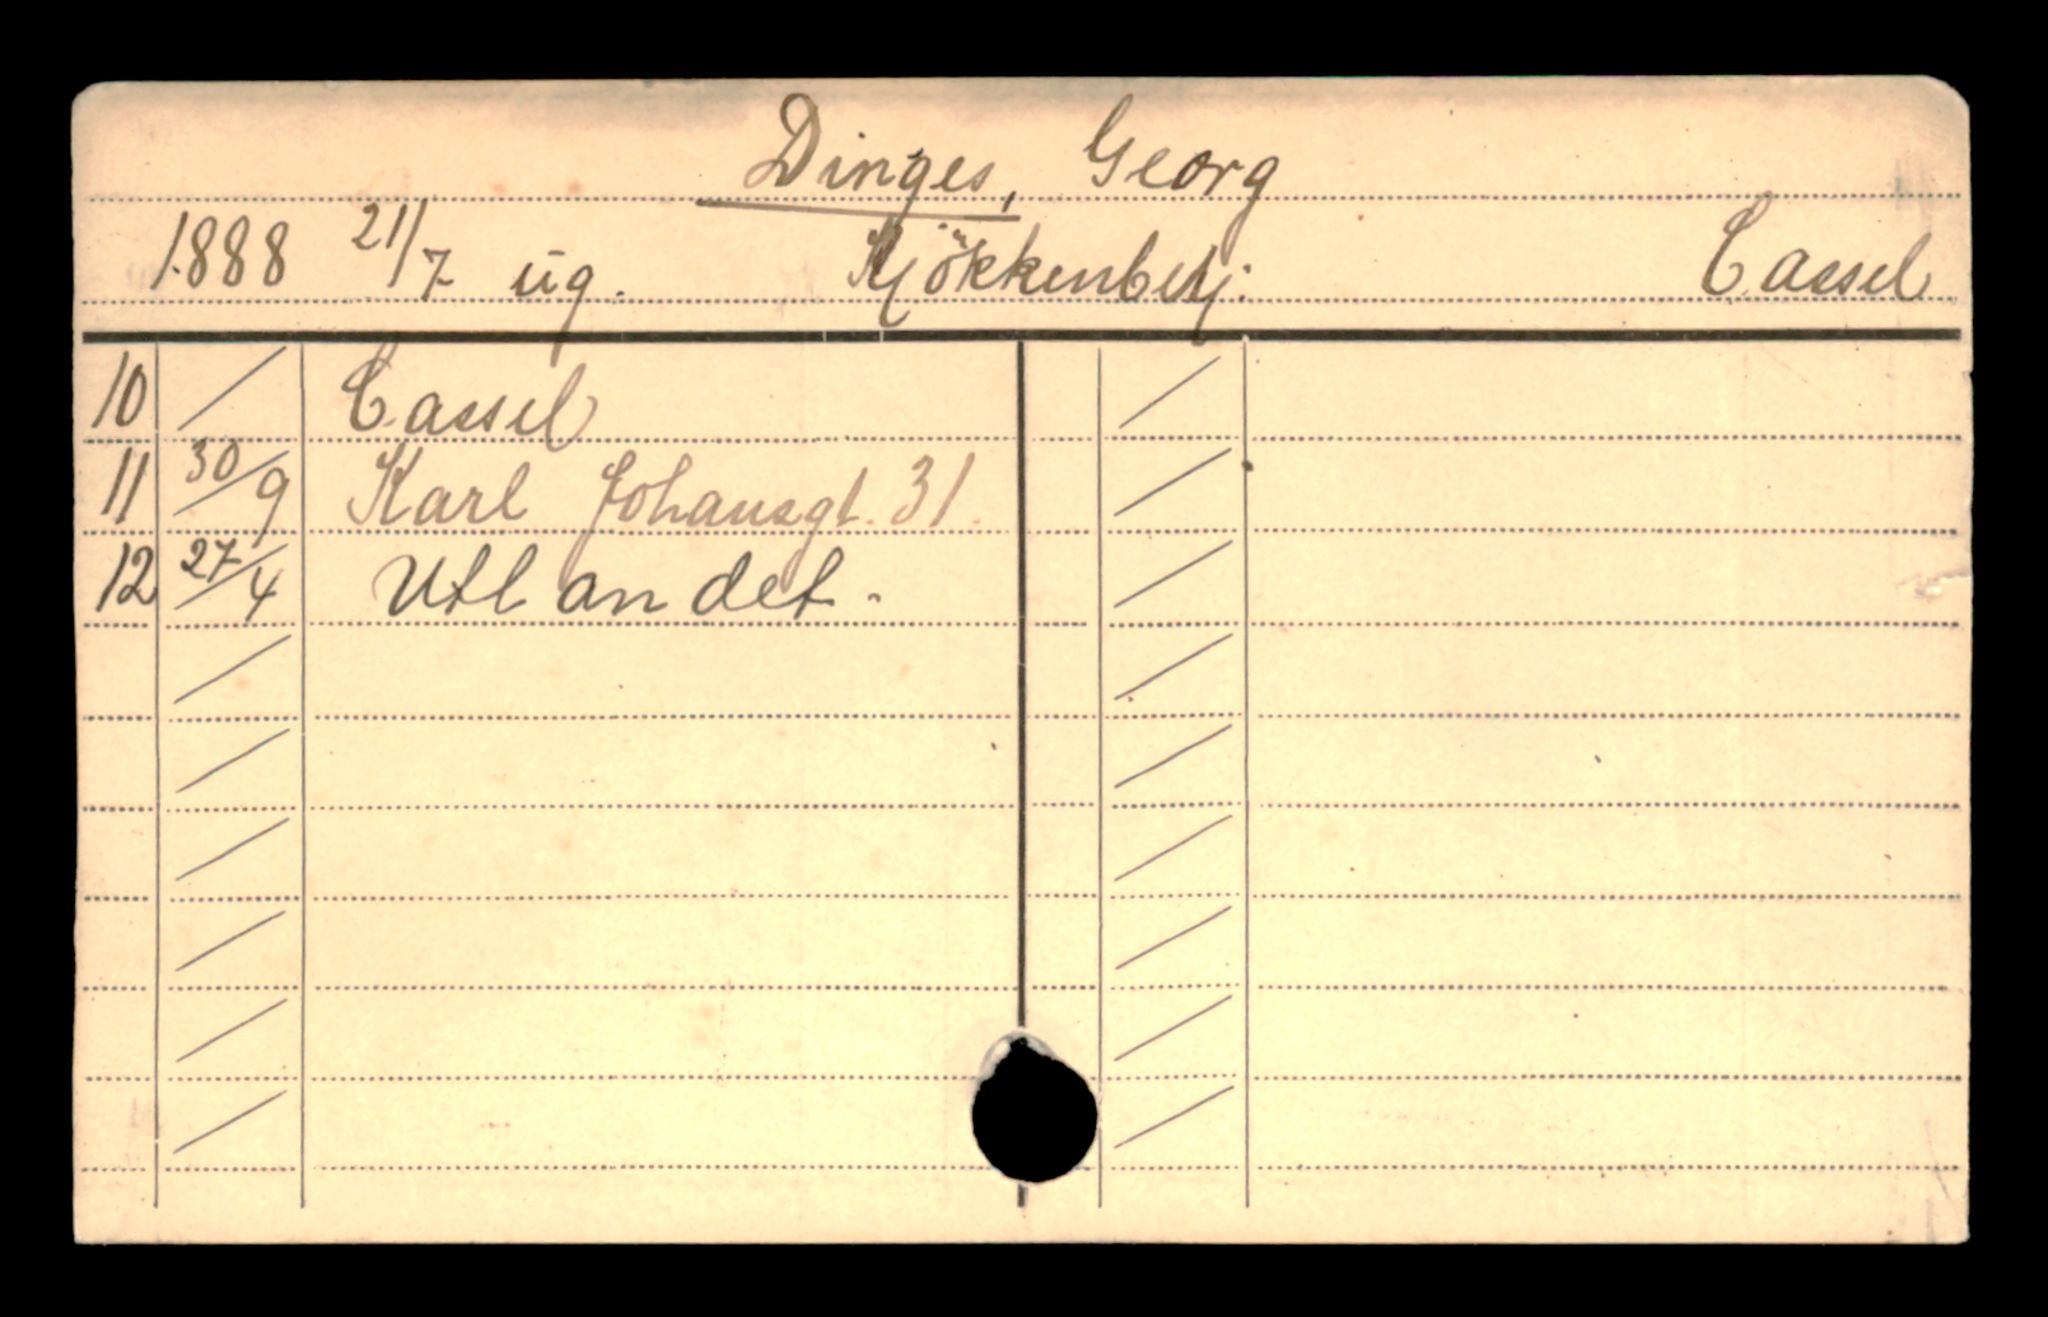 Dinges, Georg
1888 21/7 ug. Kjökkenbetj. Cassel
10 / Cassel
11 30/9 Karl Johansgt. 31.
12 27/4 Utlandet.